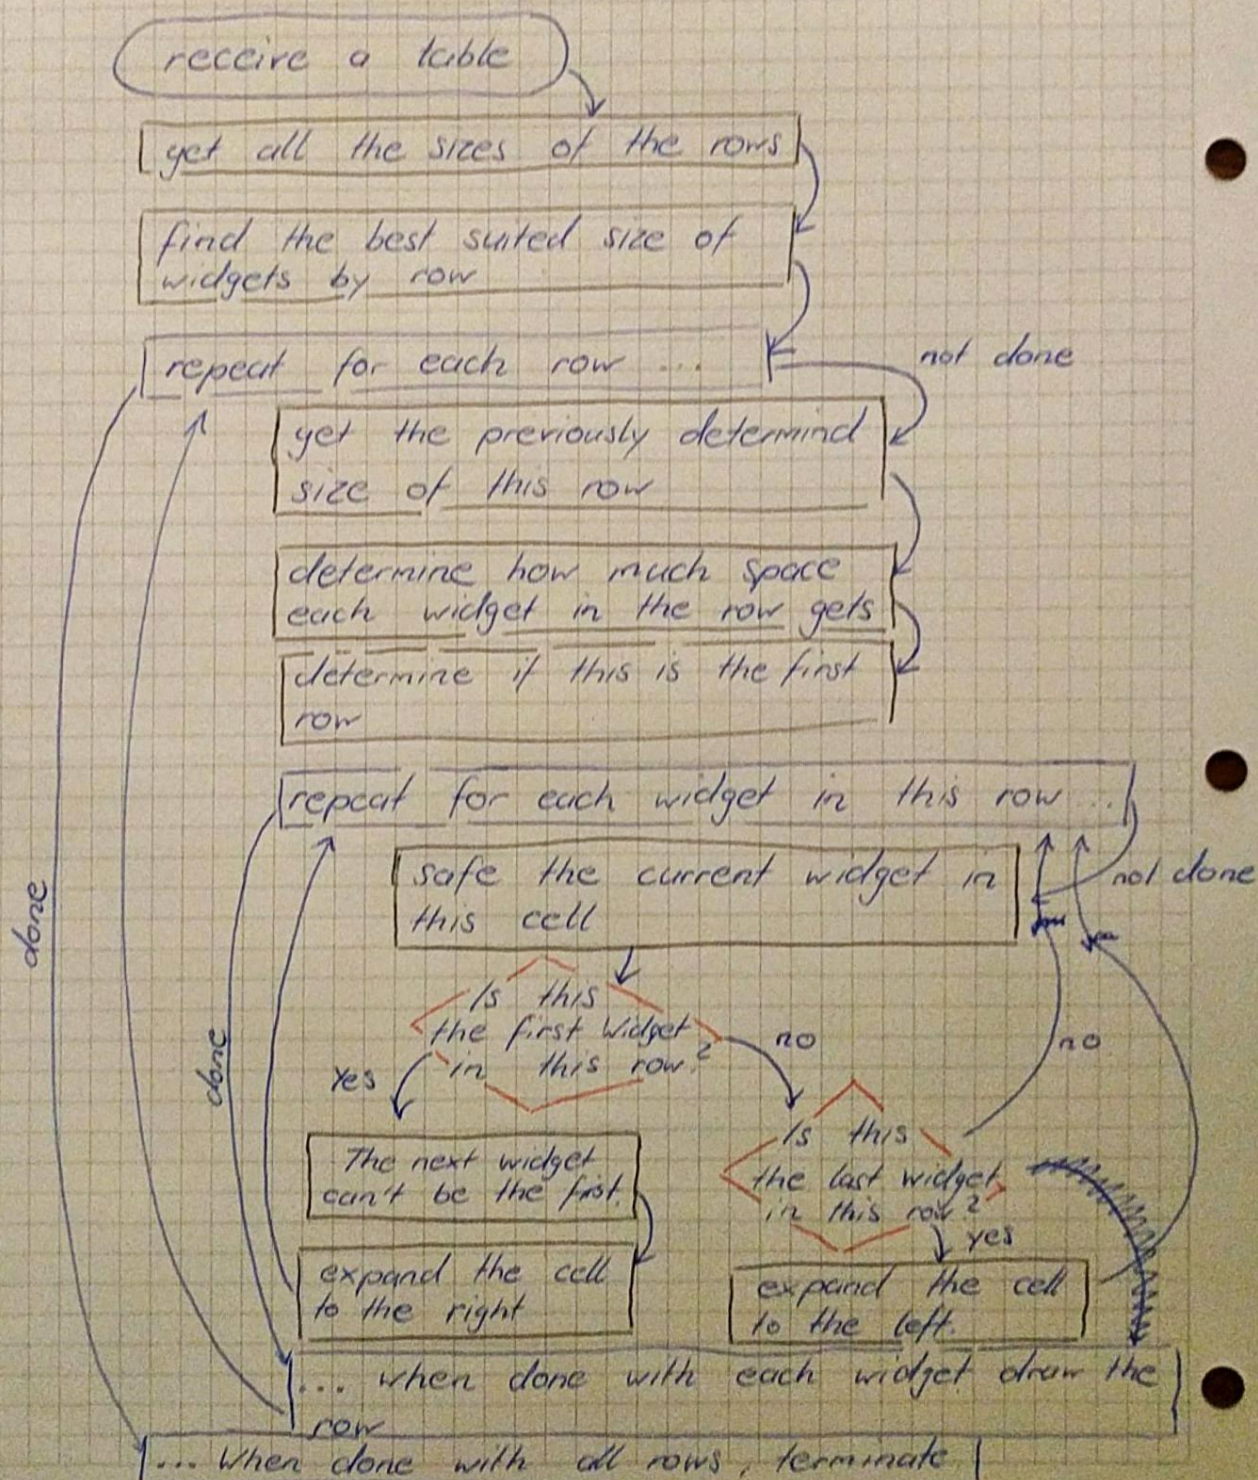 receive a table
get all the sizes of the rows
find the best suited size of
widgets by row
repeat for each row ...
not done
get the previously determind
size of this row
determine how much space
each widget in the row gets
determine if this is the first
row
repeat for each widget in this row ...
safe the current widget in
this cell
not done
done
Is this
the first Widget
in this row?
no
no
done
Yes
Is this
the last widget
in this row?
The next widget
can't be the first.
yes
expand the cell
to the right
expand the cell
to the left.
... when done with each widget draw the
row
... When done with all rows, terminate